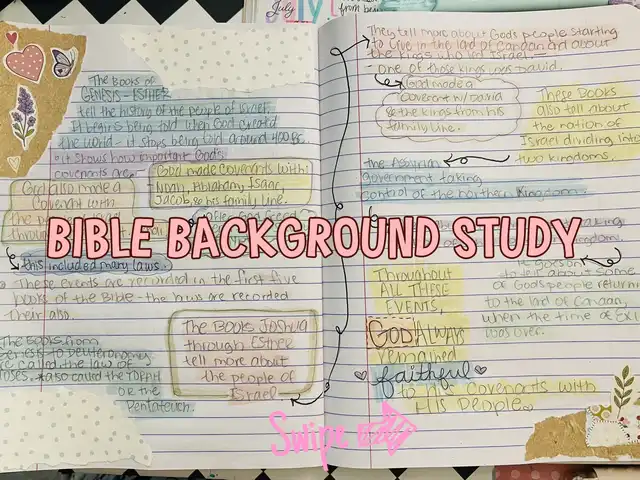 July
from
The Books of
GENESIS - ESTHER
tell the history of the people of Israel.
It begins being told when God created
the world - it stops being told around 400
It shows how important God's
covenants are.
God made covenants with
Noah, Abraham, Isaac,
Jacob, & his family line.
God also made a
Covenant with
the
through
BIBLE BACKGROUND STUDY
this included many laws.
These events are recorded in the first five
books of the Bible - the laws are recorded
their also.
The Books from
Genesis to Deuteronomy
are called the law of
Moses. also called the TORAH
OR the
Pentateuch.
The BOOKS JOSHUA
through Esther
tell more about
the people of
Israel
They tell more about God's people starting
to live in the lad of canaan ad about
the kings who led Israel
- one of those kings was David.
God made a
Covenant w/ David
& the kings from his
family line.
These BOOKS
also tell about
the nation of
Israel dividing into
two kingdoms.
the Assyrian
government taking
control of the northern kingdom.
taking
kingdom.
It goes on
to tell about some
of God's people returning
to the lad of Canaan,
when the time of
was over.
Throughout
ALL THESE
EVENTS,
GOD ALWAYS
remained
faithful
to his covenants with
His People.
Swipe